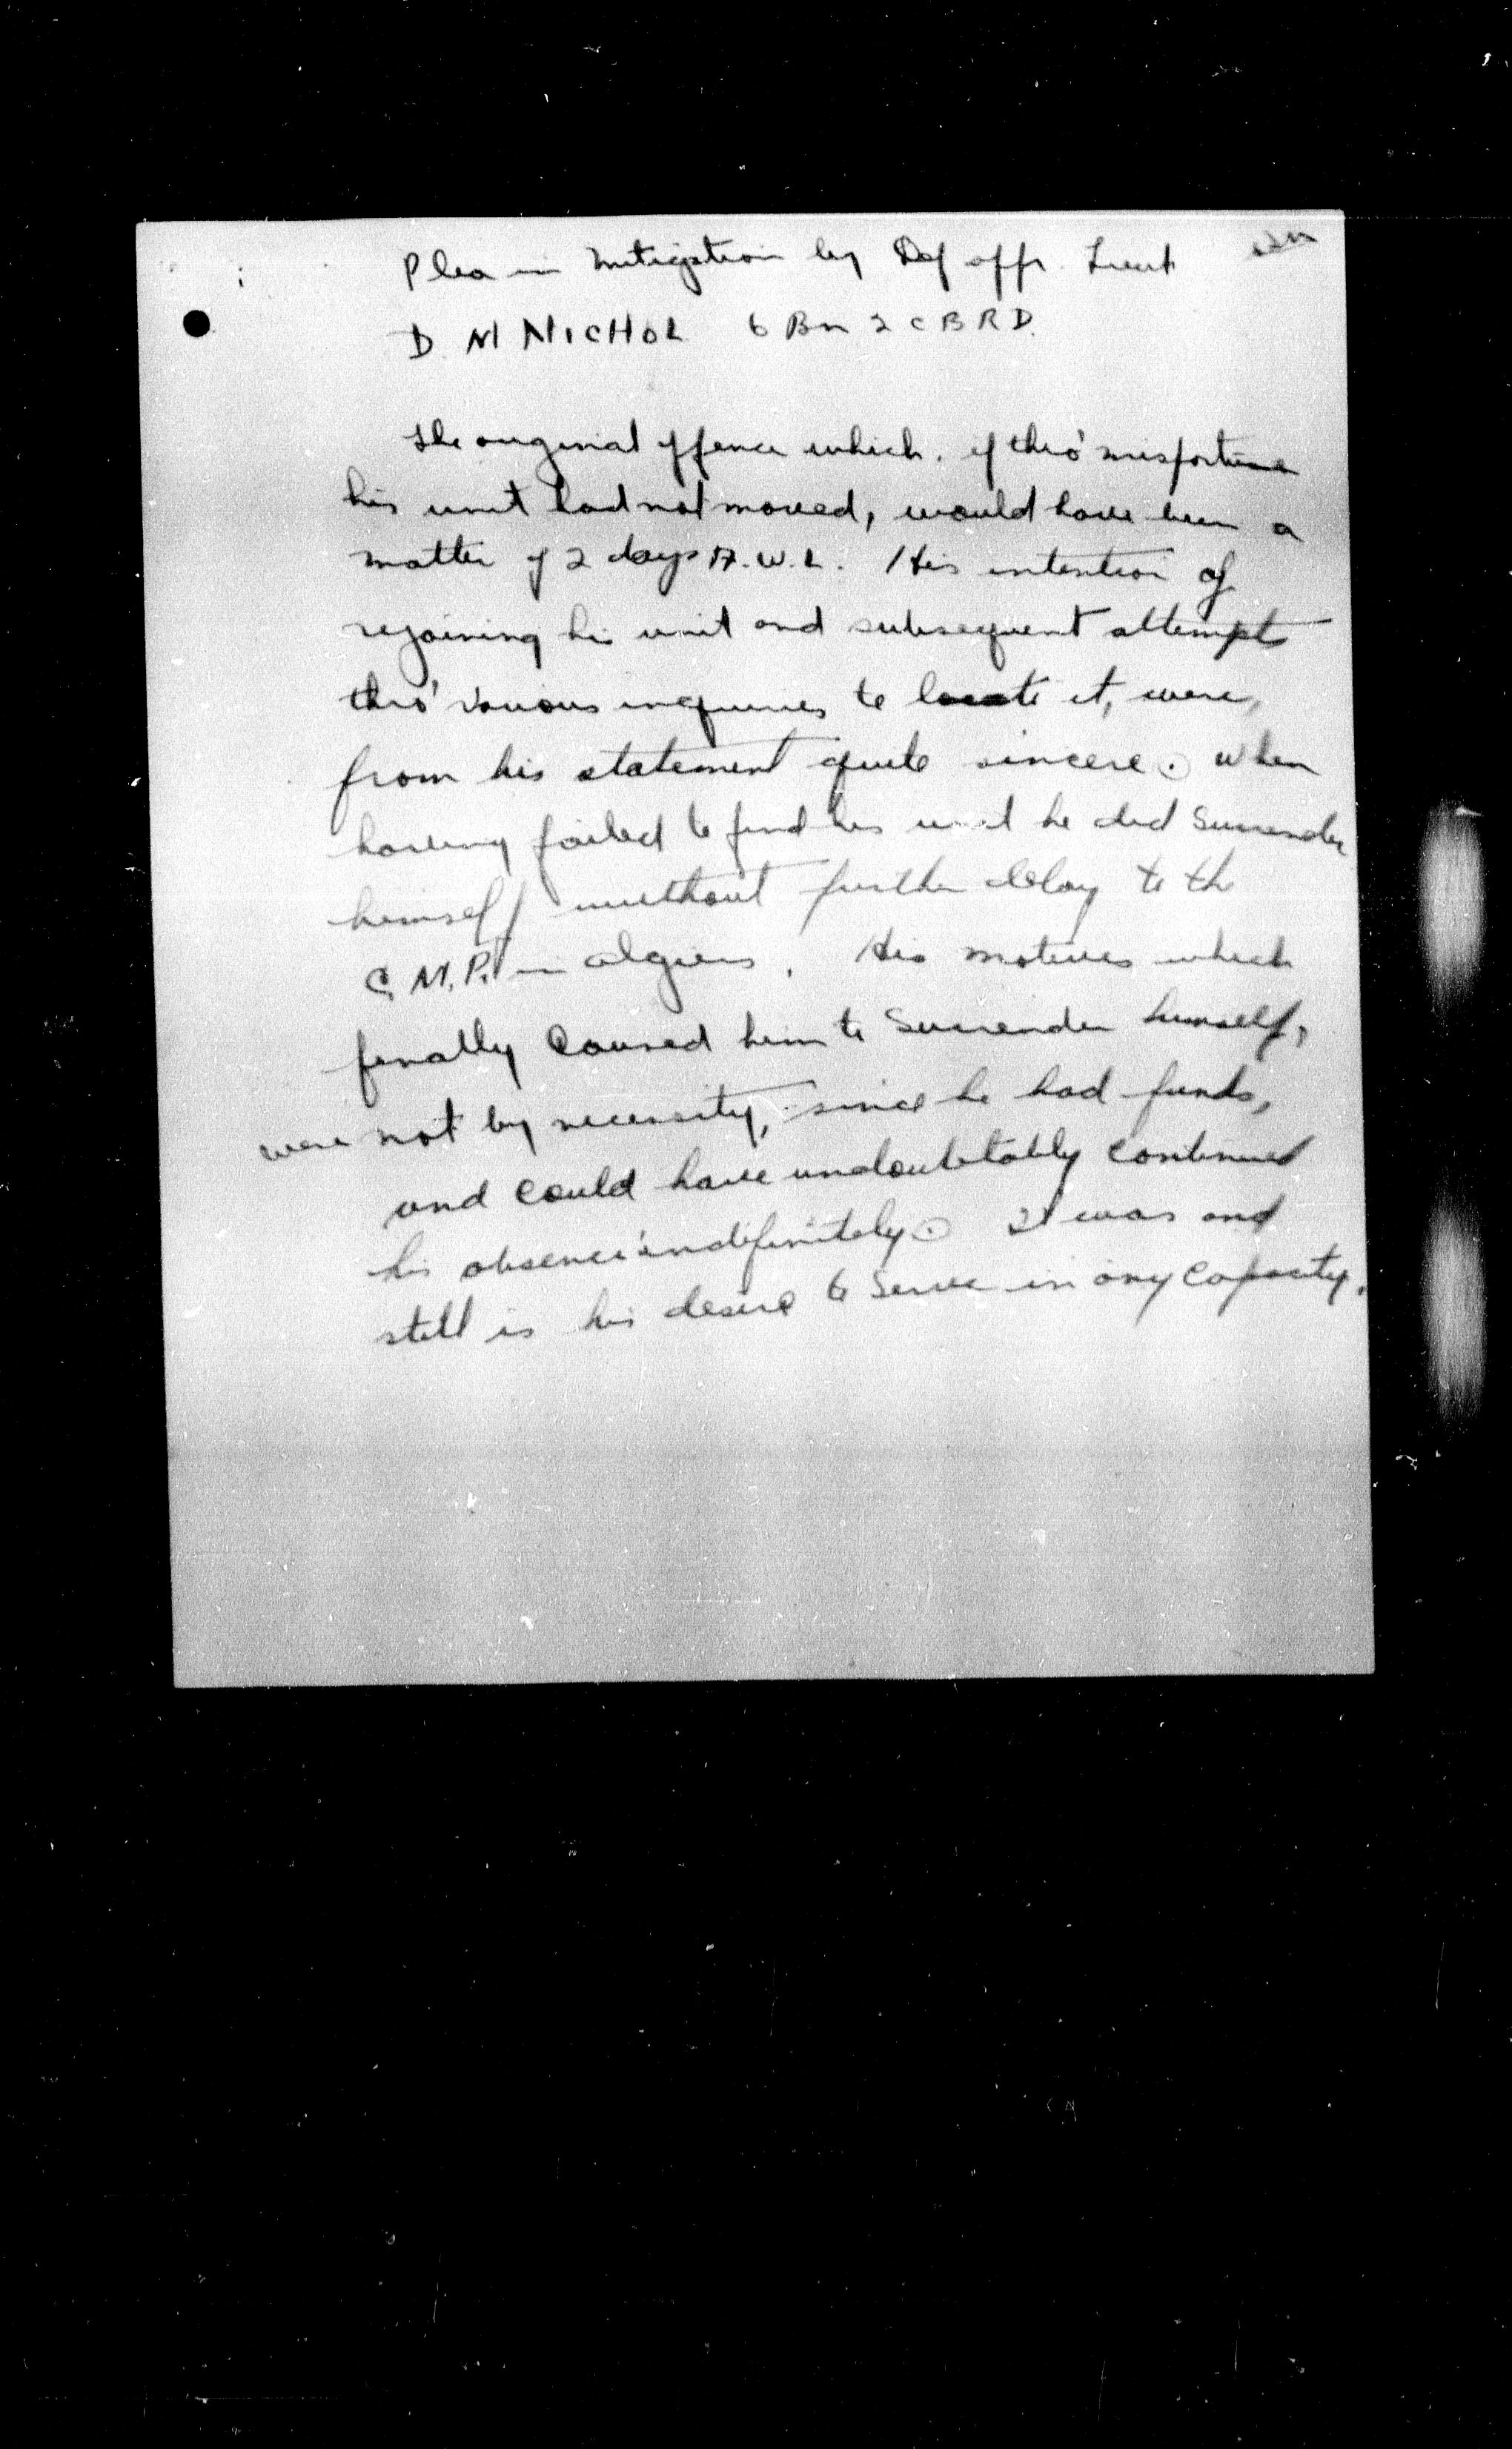 Plea in Mitigation by Def offr. Lieut
D. M NICHOL 6 Bn 2 CBRD.
The original offence which. if thro' misfortune
his unit had not moved, would have been a
matter of 2 days A.W.L. His intention of
rejoining his unit and subsequent attempts
thro' various inquiries to locate it, were,
from his statement quite sincere. When
having failed to find his unit he did surrender
himself without further delay to the
C.M.P. in Algiers. His motives which
finally caused him to surrender himself,
were not by necessity, since he had funds,
and could have undoubtably continued
his absence indefinitely. It was and
still is his desire to serve in any capacity.